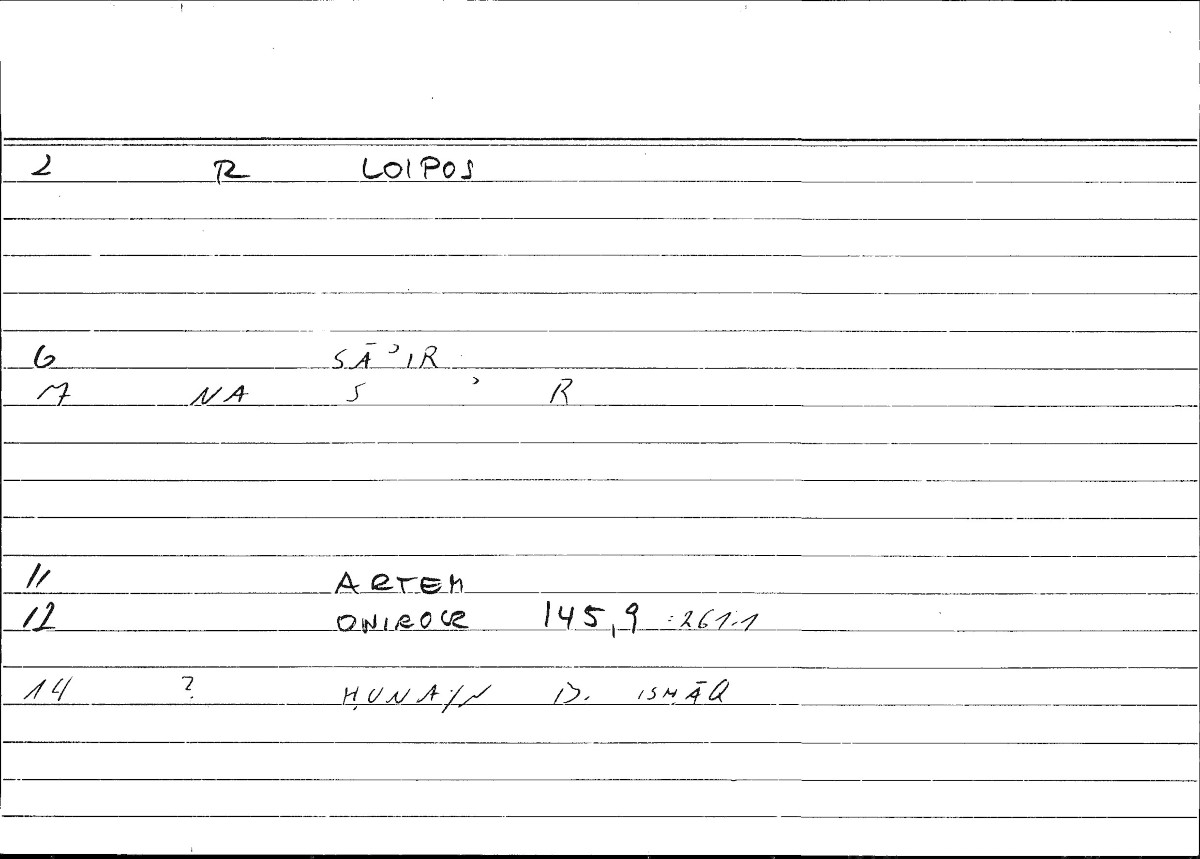 2 R LOIPOS
6 SĀʾIR
7 NA S ʾ R
11 ARTEM
12 ONIROCR 145,9 :261.1
14 ? ḤUNAYN B. ISḤĀQ